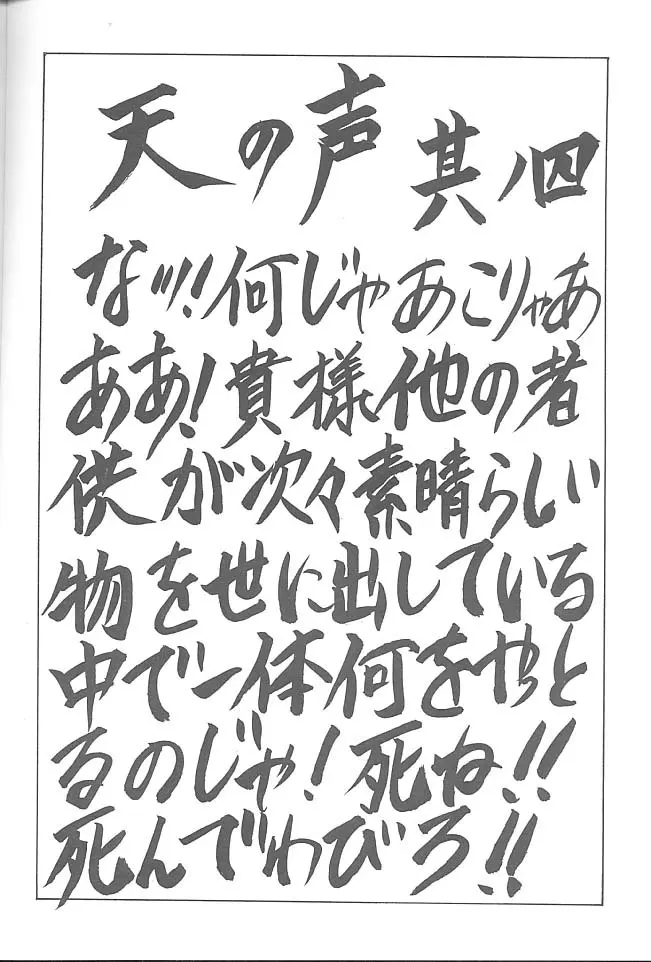 天の声 其ノ四
なッ!何じゃあこりゃあ
ああ!貴様他の者
供が次々素晴らしい
物を世に出している
中で一体何をやっと
るのじゃ!死ね!!
死んでわびろ!!